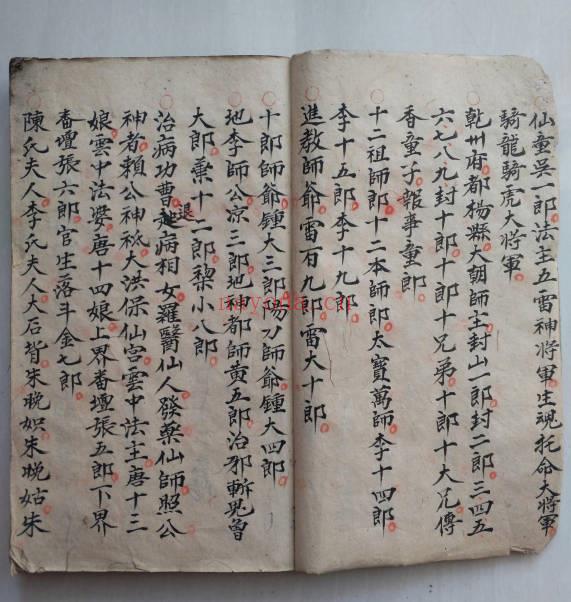 仙童吳一郎法主五雷神將軍生魂托命大將軍
騎龍騎虎大將軍
乾州府都楊縣大朝師主封山一郎封二郎三四五
六七八九封十郎十郎十兄弟十郎十大兄傳
香童子報事童郎
十二祖師郎十二本師郎太寶萬師李十四郎
李十五郎李十九郎
進教師爺雷石九郎雷大十郎
十郎師爺鍾大三郎陽刀師爺鍾大四郎
地李師公凉三郎地祁都師黄五郎治邪斬鬼曾
大郎棄十二郎黎小八郎
治病功曹退病相女羅醫仙人發藥仙師照公
神者賴公神祗大洪保仙宫雲中法主唐十三
娘雲中法婆唐十四娘上界畨壇張五郎下界
畨壇張六郎官生落斗金七郎
陳氏夫人李氏夫人大后背朱晚娰朱晚姑朱
nayoda.cn